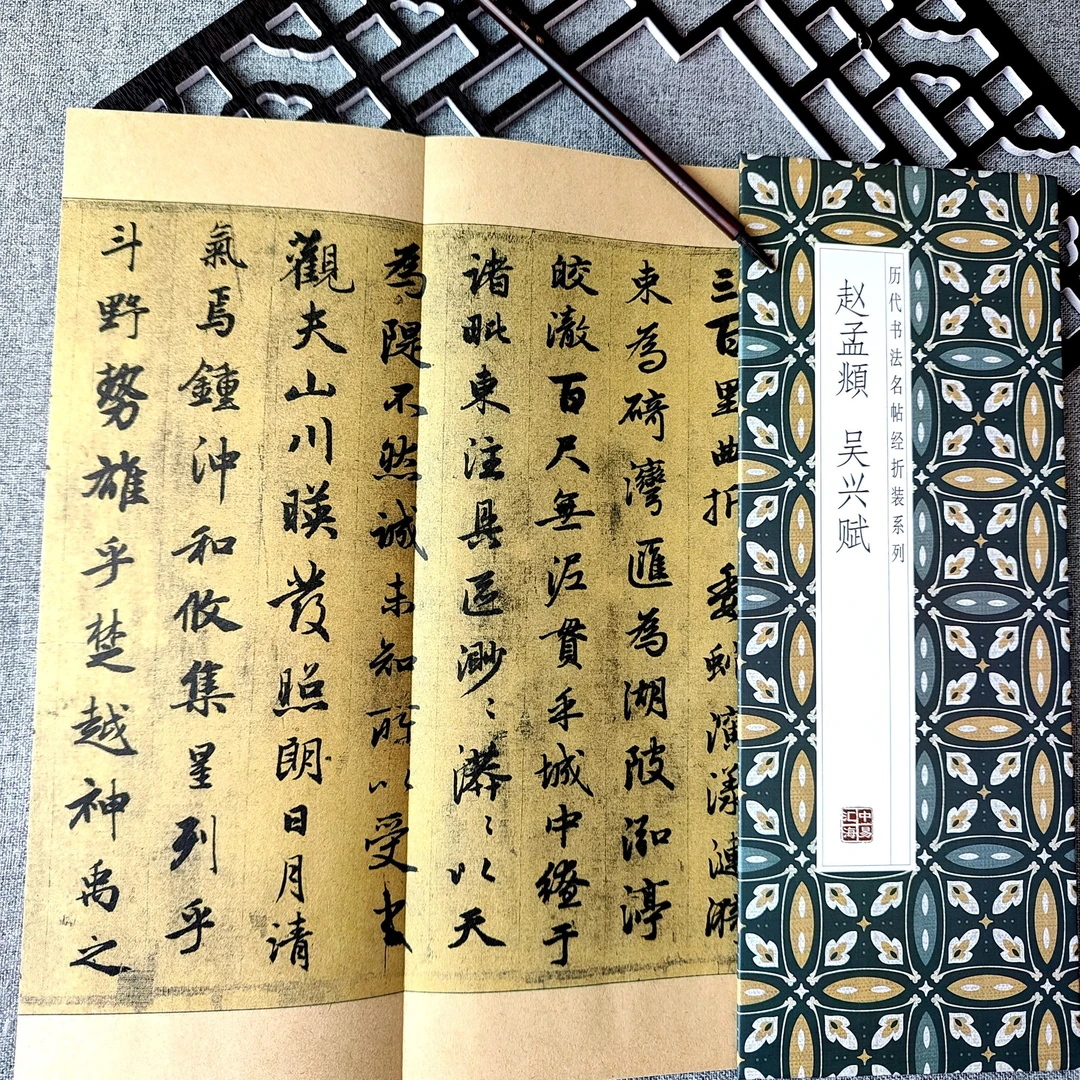 历代书法名帖经折装系列
赵孟頫 吴兴赋
中易
汇海
三百里曲折委蛇演漾漣漪
束為碕灣匯為湖陂泓渟
皎澈百尺無泥貫乎城中繚于
諸毗東注具區渺〻漭〻以天
為隄不然誠未知所以受之
觀夫山川暎發照朗日月清
氣焉鍾沖和攸集星列乎
斗野勢雄乎楚越神禹之